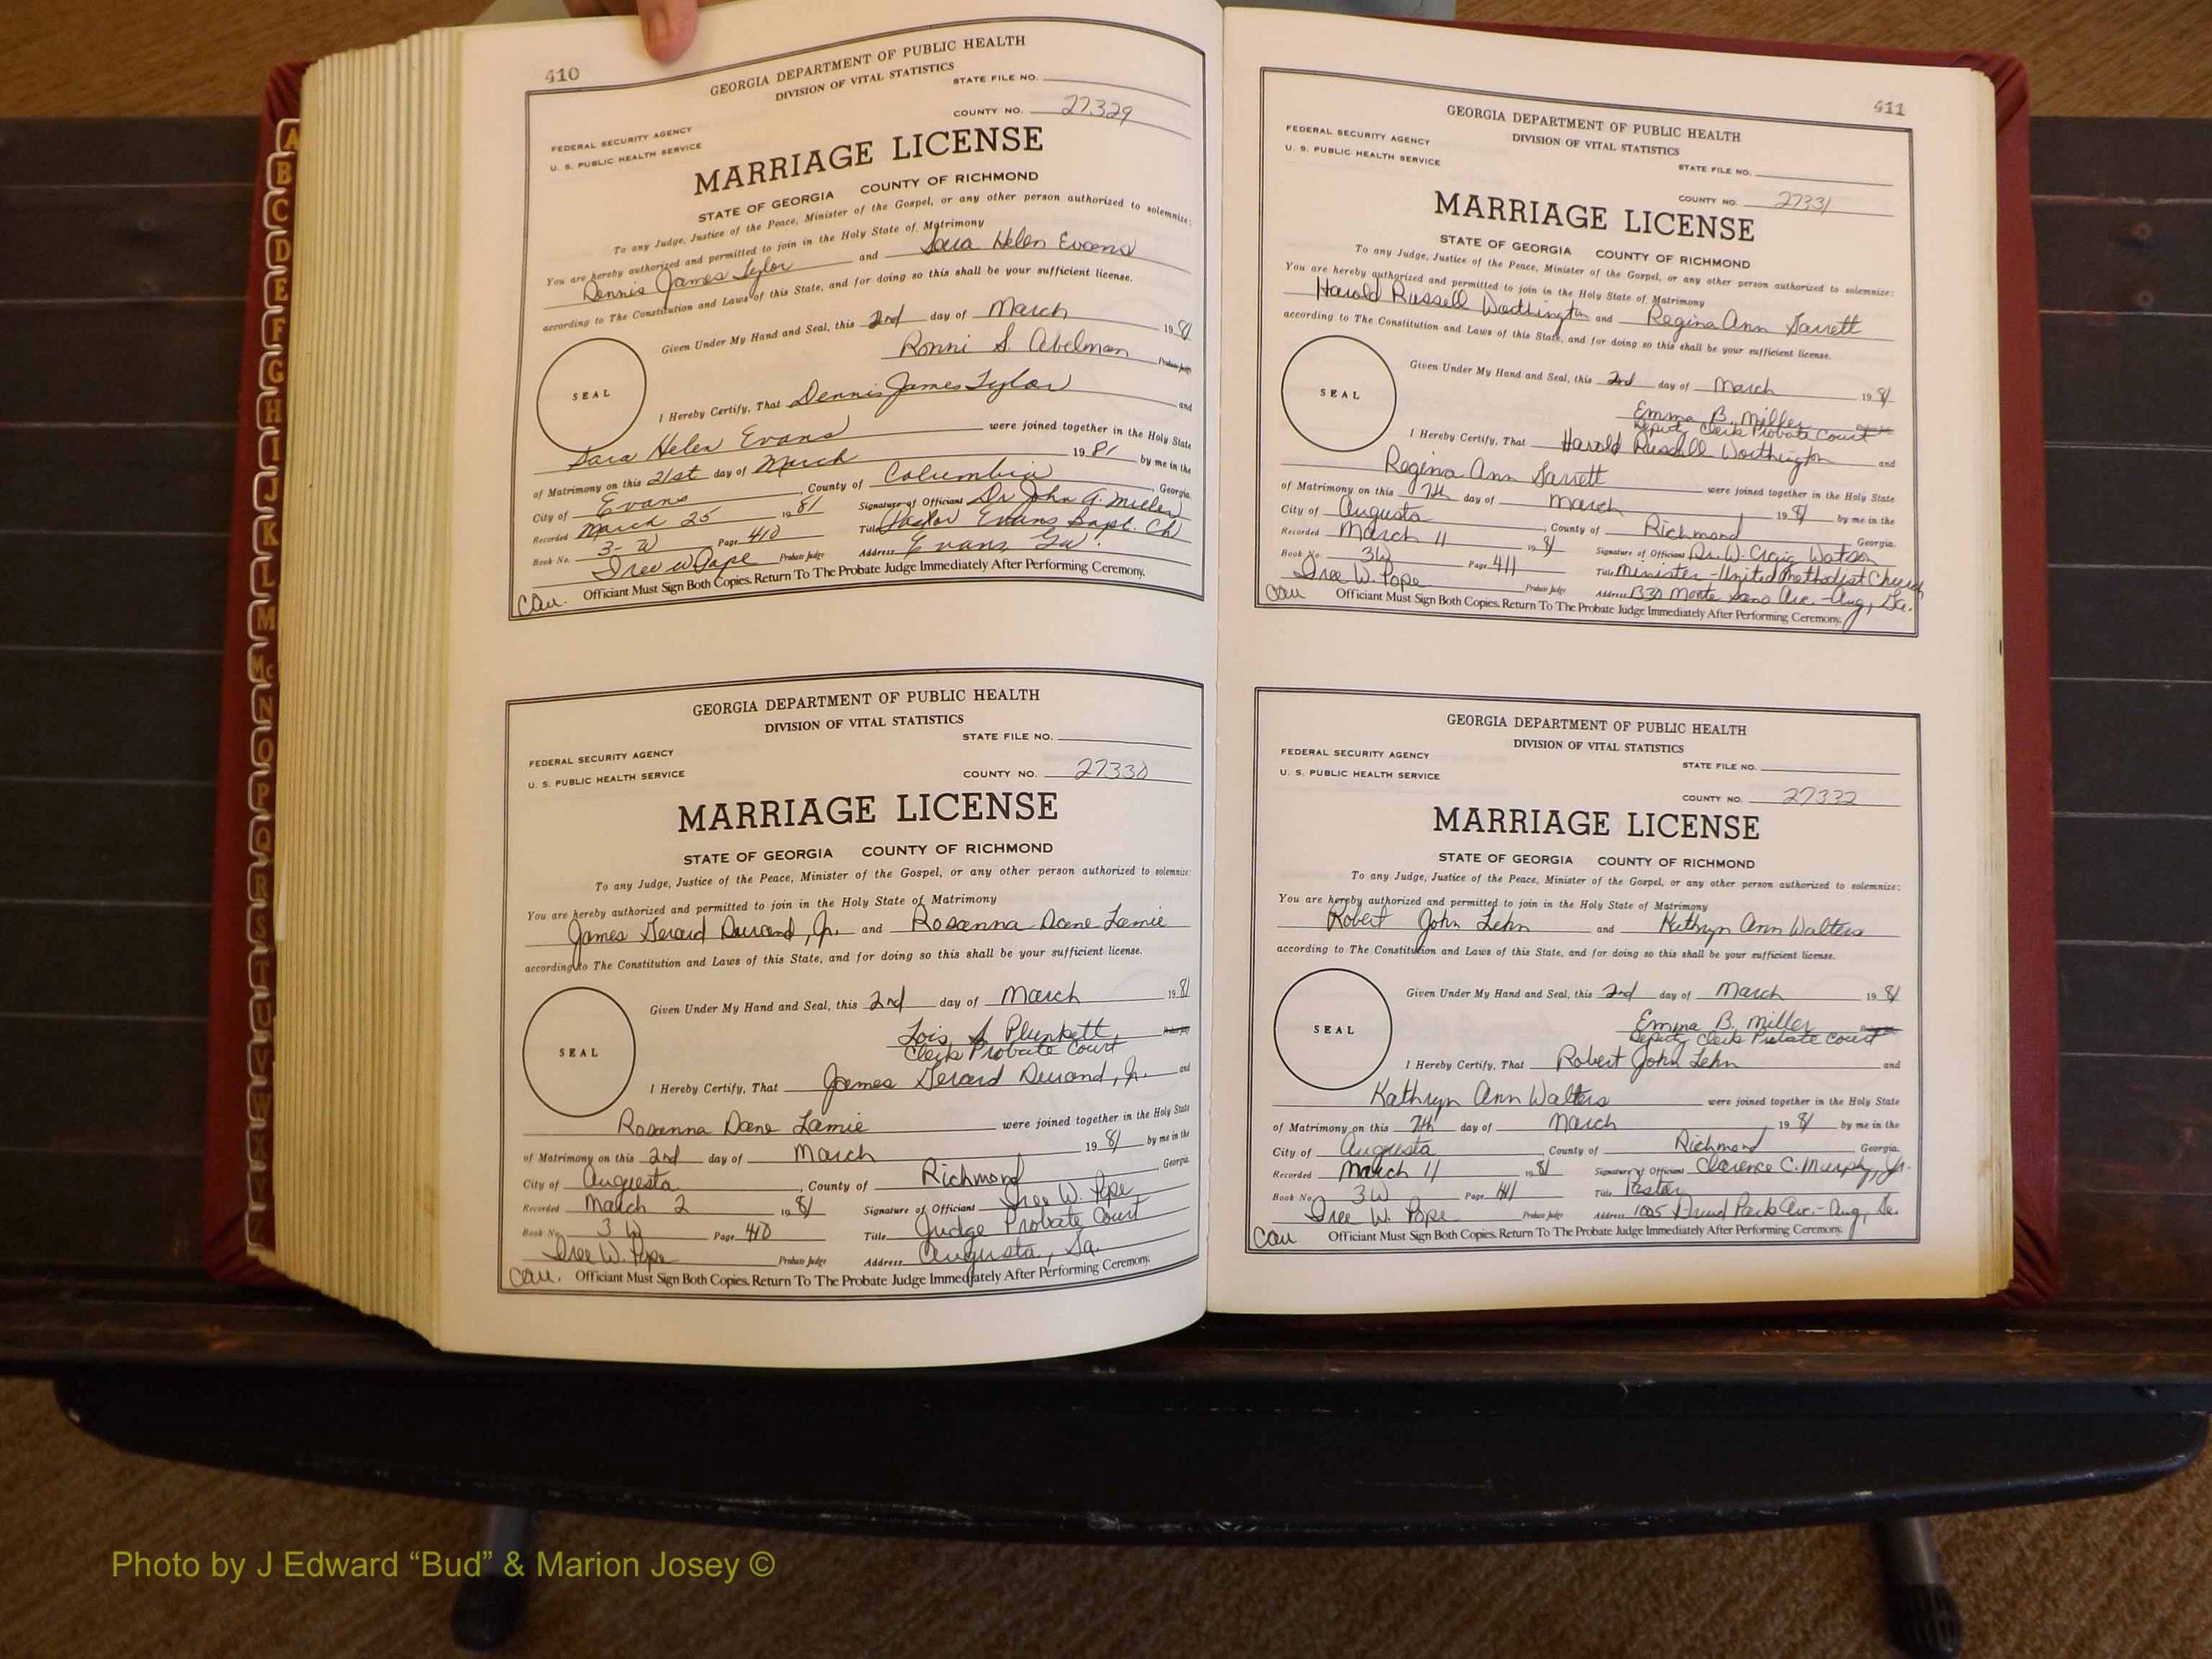 410
GEORGIA DEPARTMENT OF PUBLIC HEALTH
DIVISION OF VITAL STATISTICS
STATE FILE NO.
COUNTY NO. 27329
FEDERAL SECURITY AGENCY
U. S. PUBLIC HEALTH SERVICE
MARRIAGE LICENSE
STATE OF GEORGIA COUNTY OF RICHMOND
To any Judge, Justice of the Peace, Minister of the Gospel, or any other person authorized to solemnize:
You are hereby authorized and permitted to join in the Holy State of Matrimony
Dennis James Tylor and Sara Helen Evans
according to The Constitution and Laws of this State, and for doing so this shall be your sufficient license.
Given Under My Hand and Seal, this 2nd day of March 1981
Ronni S. Abelman Probate Judge
SEAL
I Hereby Certify, That Dennis James Tylor and
Sara Helen Evans were joined together in the Holy State
of Matrimony on this 21st day of March 1981 by me in the
City of Evans, County of Columbia, Georgia.
Recorded March 25 1981 Signature of Officiant Dr John A. Miller
Book No. 3-W Page 410 Title Pastor Evans Bapt. Ch
Iree W Pope Probate Judge Address Evans, Ga.
cau. Officiant Must Sign Both Copies. Return To The Probate Judge Immediately After Performing Ceremony.
GEORGIA DEPARTMENT OF PUBLIC HEALTH
DIVISION OF VITAL STATISTICS
STATE FILE NO.
FEDERAL SECURITY AGENCY
U. S. PUBLIC HEALTH SERVICE
COUNTY NO. 27330
MARRIAGE LICENSE
STATE OF GEORGIA COUNTY OF RICHMOND
To any Judge, Justice of the Peace, Minister of the Gospel, or any other person authorized to solemnize:
You are hereby authorized and permitted to join in the Holy State of Matrimony
James Gerard Durand, Jr. and Rosanna Dane Lamie
according to The Constitution and Laws of this State, and for doing so this shall be your sufficient license.
Given Under My Hand and Seal, this 2nd day of March 1981
Lois S. Plunkett, Probate Judge
Clerk Probate Court
SEAL
I Hereby Certify, That James Gerard Durand, Jr. and
Rosanna Dane Lamie were joined together in the Holy State
of Matrimony on this 2nd day of March 1981 by me in the
City of Augusta, County of Richmond, Georgia
Recorded March 2 1981 Signature of Officiant Iree W. Pope
Book No. 3 W Page 410 Title Judge Probate Court
Iree W. Pope Probate Judge Address Augusta, Ga.
cau. Officiant Must Sign Both Copies. Return To The Probate Judge Immediately After Performing Ceremony.
411
GEORGIA DEPARTMENT OF PUBLIC HEALTH
DIVISION OF VITAL STATISTICS
FEDERAL SECURITY AGENCY
U. S. PUBLIC HEALTH SERVICE
STATE FILE NO.
COUNTY NO. 27331
MARRIAGE LICENSE
STATE OF GEORGIA COUNTY OF RICHMOND
To any Judge, Justice of the Peace, Minister of the Gospel, or any other person authorized to solemnize:
You are hereby authorized and permitted to join in the Holy State of Matrimony
Harold Russell Worthington and Regina Ann Garrett
according to The Constitution and Laws of this State, and for doing so this shall be your sufficient license.
Given Under My Hand and Seal, this 2nd day of March 1981
Emma B. Miller
Deputy Clerk Probate Court
SEAL
I Hereby Certify, That Harold Russell Worthington and
Regina Ann Garrett were joined together in the Holy State
of Matrimony on this 7th day of March 1981 by me in the
City of Augusta, County of Richmond Georgia.
Recorded March 11 1981 Signature of Officiant Dr. W. Craig Watson
Book No. 3W Page 411 Title Minister - United Methodist Church
Iree W. Pope Probate Judge Address 1330 Monte Sano Ave. - Aug, Ga.
cau Officiant Must Sign Both Copies. Return To The Probate Judge Immediately After Performing Ceremony.
GEORGIA DEPARTMENT OF PUBLIC HEALTH
DIVISION OF VITAL STATISTICS
FEDERAL SECURITY AGENCY
U. S. PUBLIC HEALTH SERVICE
STATE FILE NO.
COUNTY NO. 27332
MARRIAGE LICENSE
STATE OF GEORGIA COUNTY OF RICHMOND
To any Judge, Justice of the Peace, Minister of the Gospel, or any other person authorized to solemnize:
You are hereby authorized and permitted to join in the Holy State of Matrimony
Robert John Lehn and Kathryn Ann Walters
according to The Constitution and Laws of this State, and for doing so this shall be your sufficient license.
Given Under My Hand and Seal, this 2nd day of March 1981
Emma B. Miller
Deputy Clerk Probate Court
SEAL
I Hereby Certify, That Robert John Lehn and
Kathryn Ann Walters were joined together in the Holy State
of Matrimony on this 7th day of March 1981 by me in the
City of Augusta, County of Richmond Georgia.
Recorded March 11 1981 Signature of Officiant Clarence C. Murphy, Jr.
Book No. 3W Page 411 Title Pastor
Iree W. Pope Probate Judge Address 1005 Druid Park Ave. - Aug, Ga.
cau Officiant Must Sign Both Copies. Return To The Probate Judge Immediately After Performing Ceremony.
A
B
C
D
E
F
G
H
I
J
K
L
M
Mc
N
O
P
Q
R
S
T
U
V
W
Photo by J Edward “Bud” & Marion Josey ©